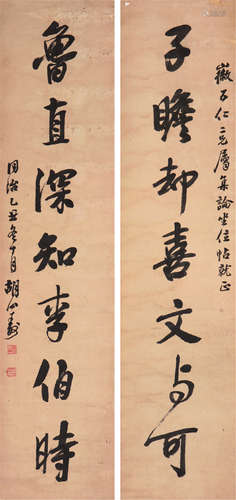 仁二兄屬集論坐位帖就正
子瞻却喜文与可
魯直深知李伯時
同治乙丑冬十月胡公壽